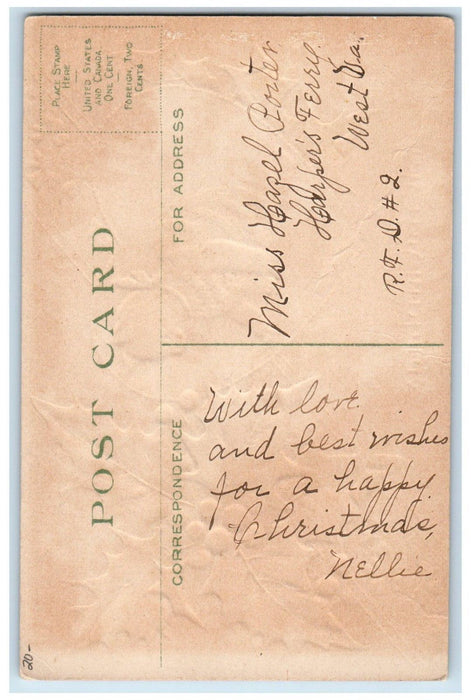 POST CARD
PLACE STAMP
HERE
UNITED STATES
AND CANADA
ONE CENT
FOREIGN, TWO
CENTS
CORRESPONDENCE
FOR ADDRESS
With love
and best wishes
for a happy
Christmas,
Nellie
Miss Hazel Porter
Harper's Ferry
West Va.
R.F.D. #2.
20-